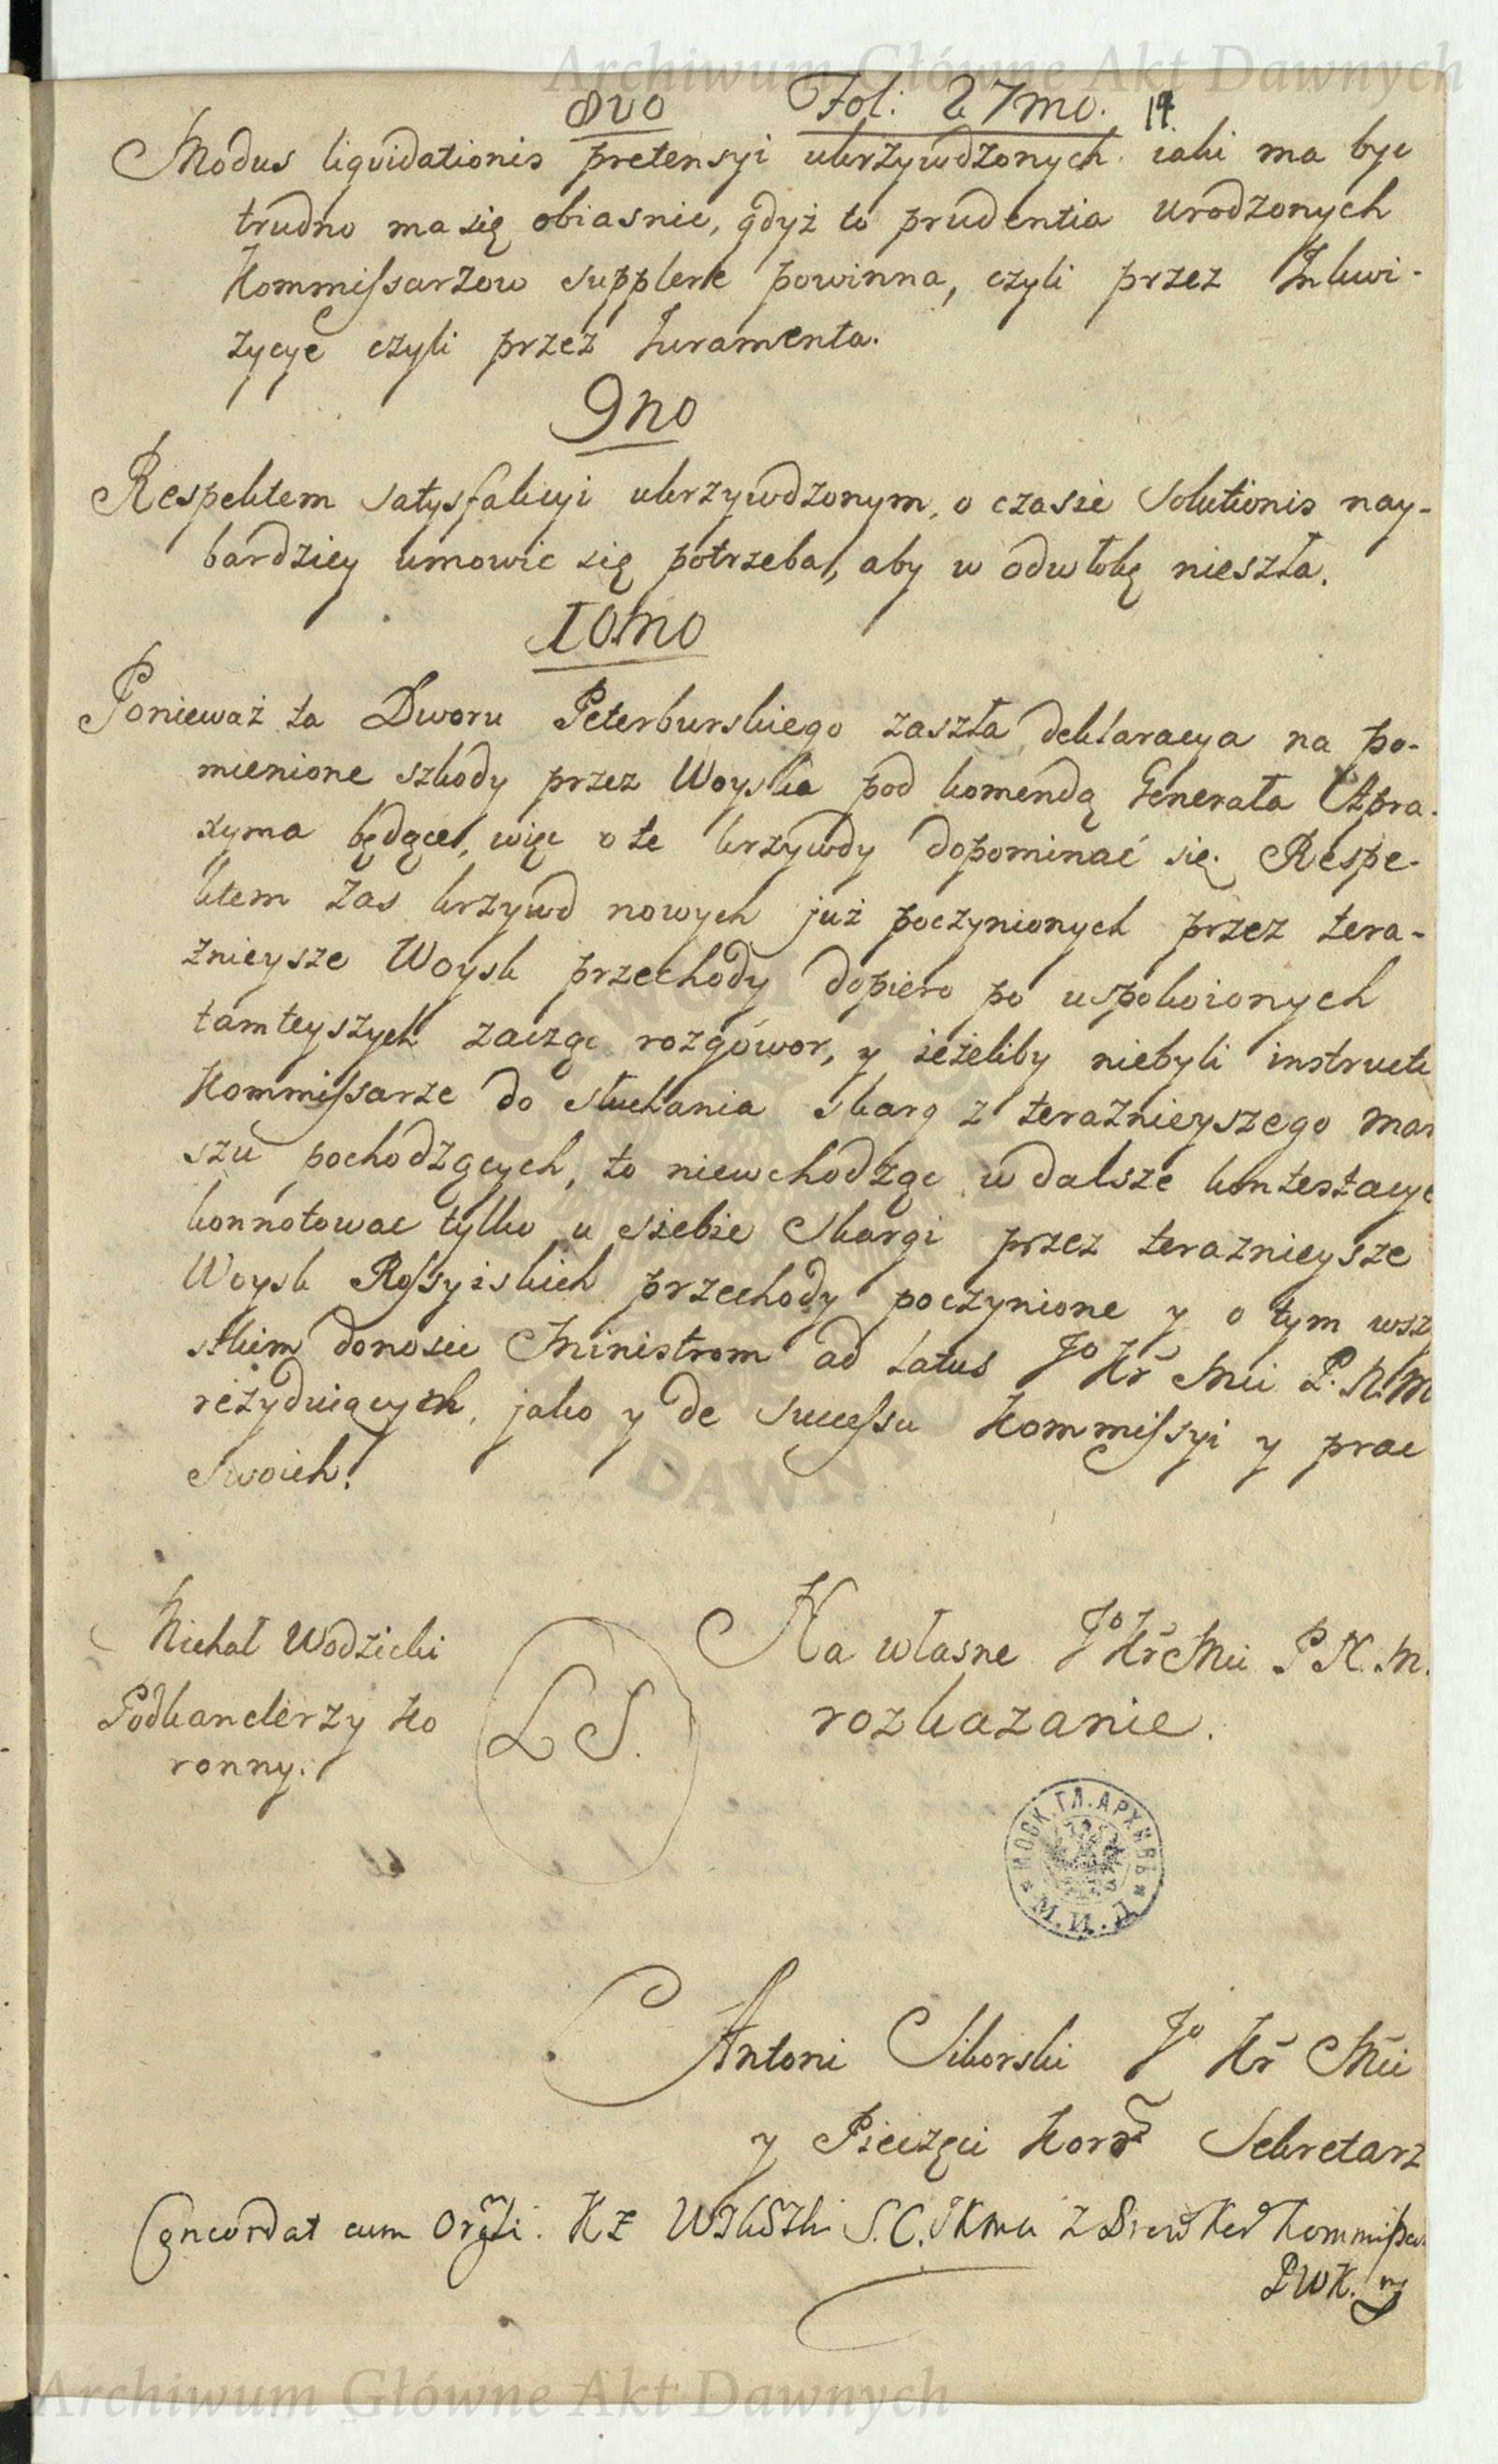 Archiwum Główne Akt Dawnych
8vo Fol: 27mo. 14
Modus liqvidationis pretensyi ukrzywdzonych iaki ma byc
trudno ma się obiasnic, gdyż to prudentia Urodzonych
Kommissarzow supplere powinna, czyli przez Inkwi-
zycye czyli przez Juramenta.
9no
Respektem satysfakcyi ukrzywdzonym, o czasie Solutionis nay-
bardziey umowic się potrzeba, aby w odwłokę nieszła.
10mo
Ponieważ ta Dworu Peterburskiego zaszła deklaracya na po-
mienione szkody przez Woyska pod komendą Generała Apra-
xyma będące, więc o te krzywdy dopominać się. Respe-
ktem zas krzywd nowych już poczynionych przez tera-
znieysze Woysk przechody dopiero po uspokoionych
tamteyszych zacząc rozgówor, y ieżeliby niebyli instructi
Kommissarze do słuchania skarg z teraznieyszego mar
szu pochodzących, to niewchodząc w dalsze kontestacye
konnotowac tylko u siebie Skargi przez teraznieysze
Woysk Rossyiskich przechody poczynione y o tym wszy
stkim donosic Ministrom ad latus Jo Kr Mci P. N. M
rezyduiących, jako y de Sucessu Kommissyi y prac
Swoich.
Michał Wodzicki
Podkanclerzy Ko
ronny.
L S.
Na własne Jo Kr Mci P N. M.
rozkazanie.
МОСК. ГЛ. АРХИВЪ
М. И. Д.
Antoni Sikorski Jo Kr Mci
y Pieczęci Korr Sekretarz
Concordat cum Orgli.
PWK. mp
Archiwum Główne Akt Dawnych